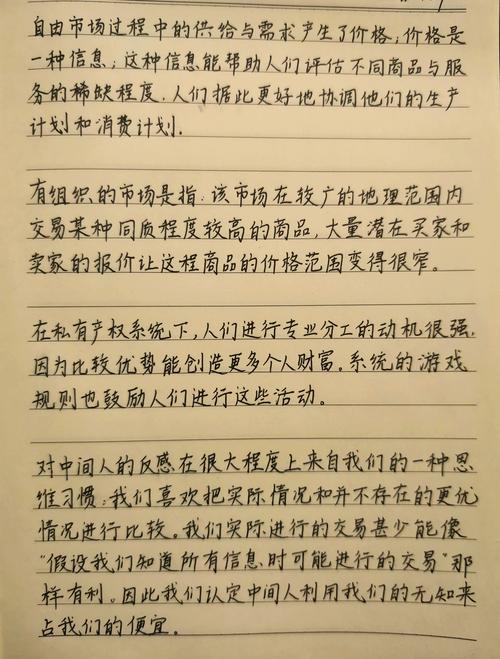 自由市场过程中的供给与需求产生了价格；价格是
一种信息；这种信息能帮助人们评估不同商品与服
务的稀缺程度，人们据此更好地协调他们的生产
计划和消费计划.
有组织的市场是指：该市场在较广的地理范围内
交易某种同质程度较高的商品，大量潜在买家和
卖家的报价让这程商品的价格范围变得很窄。
在私有产权系统下，人们进行专业分工的动机很强，
因为比较优势能创造更多个人财富。系统的游戏
规则也鼓励人们进行这些活动。
对中间人的反感在很大程度上来自我们的一种思
维习惯：我们喜欢把实际情况和并不存在的更优
情况进行比较。我们实际进行的交易甚少能像
“假设我们知道所有信息时可能进行的交易”那
样有利。因此我们认定中间人利用我们的无知来
占我们的便宜。